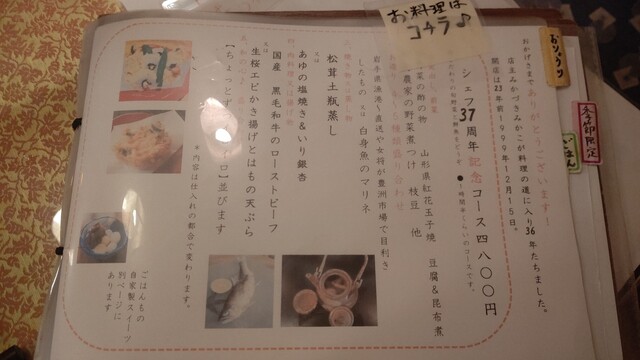 お料理は
コチラ♪
おソウソ
季節限定
ごはん
おかげさまでありがとうございます！
店主みかづきみかこが料理の道に入り36年たちました。
開店は23年前1999年12月15日。
シェフ37周年記念コース四八〇〇円
●1時間半くらいのコースです。
菜の酢の物 山形県紅花玉子焼 豆腐&昆布煮
農家の野菜煮つけ 枝豆 他
岩手県漁港より直送や女将が豊洲市場で目利き
したもの 又は 白身魚のマリネ
松茸土瓶蒸し
又は
あゆの塩焼き&いり銀杏
国産 黒毛和牛のローストビーフ
又は
生桜エビかき揚げとはもの天ぷら
【ちょっとず
並びます
＊内容は仕入れの都合で変わります。
ごはんもの
自家製スイーツ
別ページに
あります